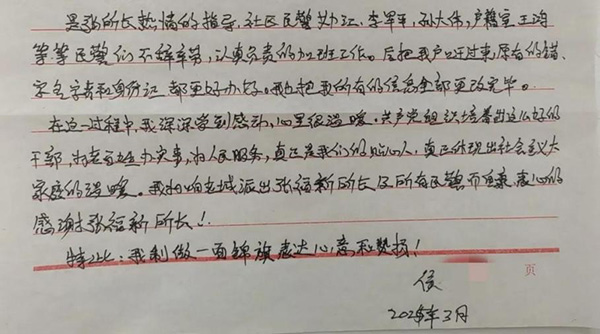 是张所长热情的指导,社区民警办江、李军平、孙大伟,户籍室王鸿
等等民警们不辞辛苦,认真负责的加班工作。全把我户口迁过来,原有的错、
字名字表和身份证都更好办好。我也把我的有的信息全部更改完毕。
在这一过程中,我深深受到感动,心里很温暖。共产党组织培养出这么好的
干部,为老百姓办实事,为人民服务,真正是我们的贴心人,真正体现出社会主义大
家庭的温暖。我相响老城派出张绍新所长及所有民警而自豪,衷心的
感谢张绍新所长!
特此:我制做一面锦旗表达心意和赞损!
侯
页
202年3月